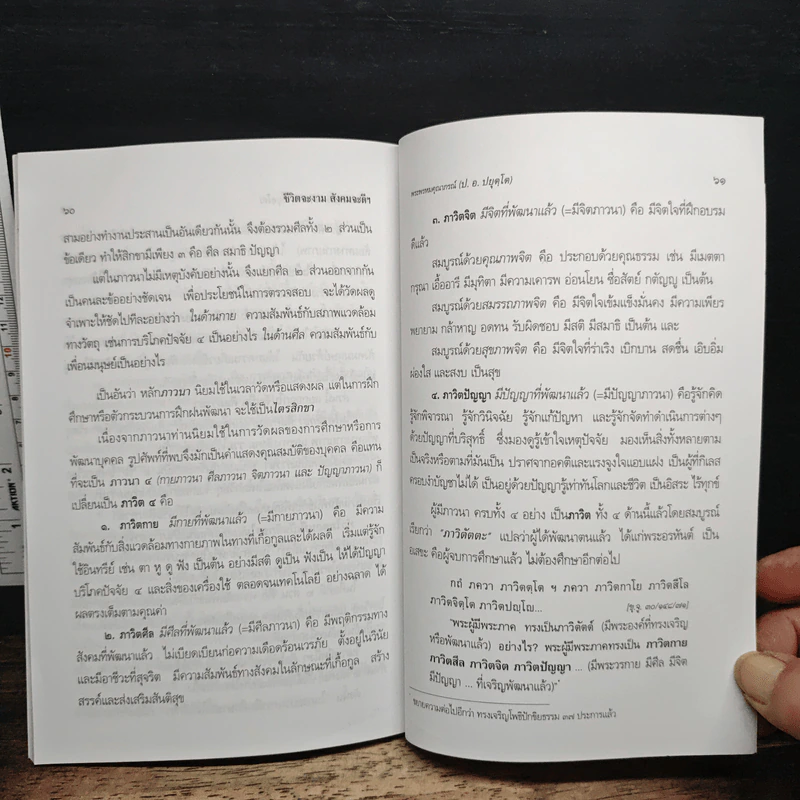 ๖๐
ชีวิตจะงาม สังคมจะดีฯ
สามอย่างทำงานประสานเป็นอันเดียวกันนั้น จึงต้องรวมศีลทั้ง ๒ ส่วนเป็น
ข้อเดียว ทำให้สิกขามีเพียง ๓ คือ ศีล สมาธิ ปัญญา
แต่ในภาวนาไม่มีเหตุบังคับอย่างนั้น จึงแยกศีล ๒ ส่วนออกจากกัน
เป็นคนละข้ออย่างชัดเจน เพื่อประโยชน์ในการตรวจสอบ จะได้วัดผลดู
จำเพาะให้ชัดไปทีละอย่างว่า ในด้านกาย ความสัมพันธ์กับสภาพแวดล้อม
ทางวัตถุ เช่นการบริโภคปัจจัย ๔ เป็นอย่างไร ในด้านศีล ความสัมพันธ์กับ
เพื่อนมนุษย์เป็นอย่างไร
เป็นอันว่า หลักภาวนา นิยมใช้ในเวลาวัดหรือแสดงผล แต่ในการฝึก
ศึกษาหรือตัวกระบวนการฝึกฝนพัฒนา จะใช้เป็นไตรสิกขา
เนื่องจากภาวนาท่านนิยมใช้ในการวัดผลของการศึกษาหรือการ
พัฒนาบุคคล รูปศัพท์ที่พบจึงมักเป็นคำแสดงคุณสมบัติของบุคคล คือแทน
ที่จะเป็น ภาวนา ๔ (กายภาวนา ศีลภาวนา จิตภาวนา และ ปัญญาภาวนา) ก็
เปลี่ยนเป็น ภาวิต ๔ คือ
๑. ภาวิตกาย มีกายที่พัฒนาแล้ว (=มีกายภาวนา) คือ มีความ
สัมพันธ์กับสิ่งแวดล้อมทางกายภาพในทางที่เกื้อกูลและได้ผลดี เริ่มแต่รู้จัก
ใช้อินทรีย์ เช่น ตา หู ดู ฟัง เป็นต้น อย่างมีสติ ดูเป็น ฟังเป็น ให้ได้ปัญญา
บริโภคปัจจัย ๔ และสิ่งของเครื่องใช้ ตลอดจนเทคโนโลยี อย่างฉลาด ได้
ผลตรงเต็มตามคุณค่า
๒. ภาวิตศีล มีศีลที่พัฒนาแล้ว (=มีศีลภาวนา) คือ มีพฤติกรรมทาง
สังคมที่พัฒนาแล้ว ไม่เบียดเบียนก่อความเดือดร้อนเวรภัย ตั้งอยู่ในวินัย
และมีอาชีวะที่สุจริต มีความสัมพันธ์ทางสังคมในลักษณะที่เกื้อกูล สร้าง
สรรค์และส่งเสริมสันติสุข
พระพรหมคุณาภรณ์ (ป. อ. ปยุตฺโต)
๖๑
๓. ภาวิตจิต มีจิตที่พัฒนาแล้ว (=มีจิตภาวนา) คือ มีจิตใจที่ฝึกอบรม
ดีแล้ว
สมบูรณ์ด้วยคุณภาพจิต คือ ประกอบด้วยคุณธรรม เช่น มีเมตตา
กรุณา เอื้ออารี มีมุทิตา มีความเคารพ อ่อนโยน ซื่อสัตย์ กตัญญู เป็นต้น
สมบูรณ์ด้วยสมรรถภาพจิต คือ มีจิตใจเข้มแข็งมั่นคง มีความเพียร
พยายาม กล้าหาญ อดทน รับผิดชอบ มีสติ มีสมาธิ เป็นต้น และ
สมบูรณ์ด้วยสุขภาพจิต คือ มีจิตใจที่ร่าเริง เบิกบาน สดชื่น เอิบอิ่ม
ผ่องใส และสงบ เป็นสุข
๔. ภาวิตปัญญา มีปัญญาที่พัฒนาแล้ว (=มีปัญญาภาวนา) คือรู้จักคิด
รู้จักพิจารณา รู้จักวินิจฉัย รู้จักแก้ปัญหา และรู้จักจัดทำดำเนินการต่างๆ
ด้วยปัญญาที่บริสุทธิ์ ซึ่งมองดูรู้เข้าใจเหตุปัจจัย มองเห็นสิ่งทั้งหลายตาม
เป็นจริงหรือตามที่มันเป็น ปราศจากอคติและแรงจูงใจแอบแฝง เป็นผู้ที่กิเลส
ครอบงำบัญชาไม่ได้ เป็นอยู่ด้วยปัญญารู้เท่าทันโลกและชีวิต เป็นอิสระ ไร้ทุกข์
ผู้มีภาวนา ครบทั้ง ๔ อย่าง เป็นภาวิต ทั้ง ๔ ด้านนี้แล้วโดยสมบูรณ์
เรียกว่า "ภาวิตัตตะ" แปลว่าผู้ได้พัฒนาตนแล้ว ได้แก่พระอรหันต์ เป็น
อเสขะ คือผู้จบการศึกษาแล้ว ไม่ต้องศึกษาอีกต่อไป
กถํ ภควา ภาวิตตฺโต ฯ ภควา ภาวิตกาโย ภาวิตสีโล
ภาวิตจิตฺโต ภาวิตปญฺโญ...
[ขุ.จู. ๓๐/๑๔๘/๗๑]
"พระผู้มีพระภาค ทรงเป็นภาวิตัตต์ (มีพระองค์ที่ทรงเจริญ
หรือพัฒนาแล้ว) อย่างไร? พระผู้มีพระภาคทรงเป็น ภาวิตกาย
ภาวิตสีล ภาวิตจิต ภาวิตปัญญา ... (มีพระวรกาย มีศีล มีจิต
มีปัญญา ... ที่เจริญพัฒนาแล้ว)"*
* ขยายความต่อไปอีกว่า ทรงเจริญโพธิปักขิยธรรม ๓๗ ประการแล้ว